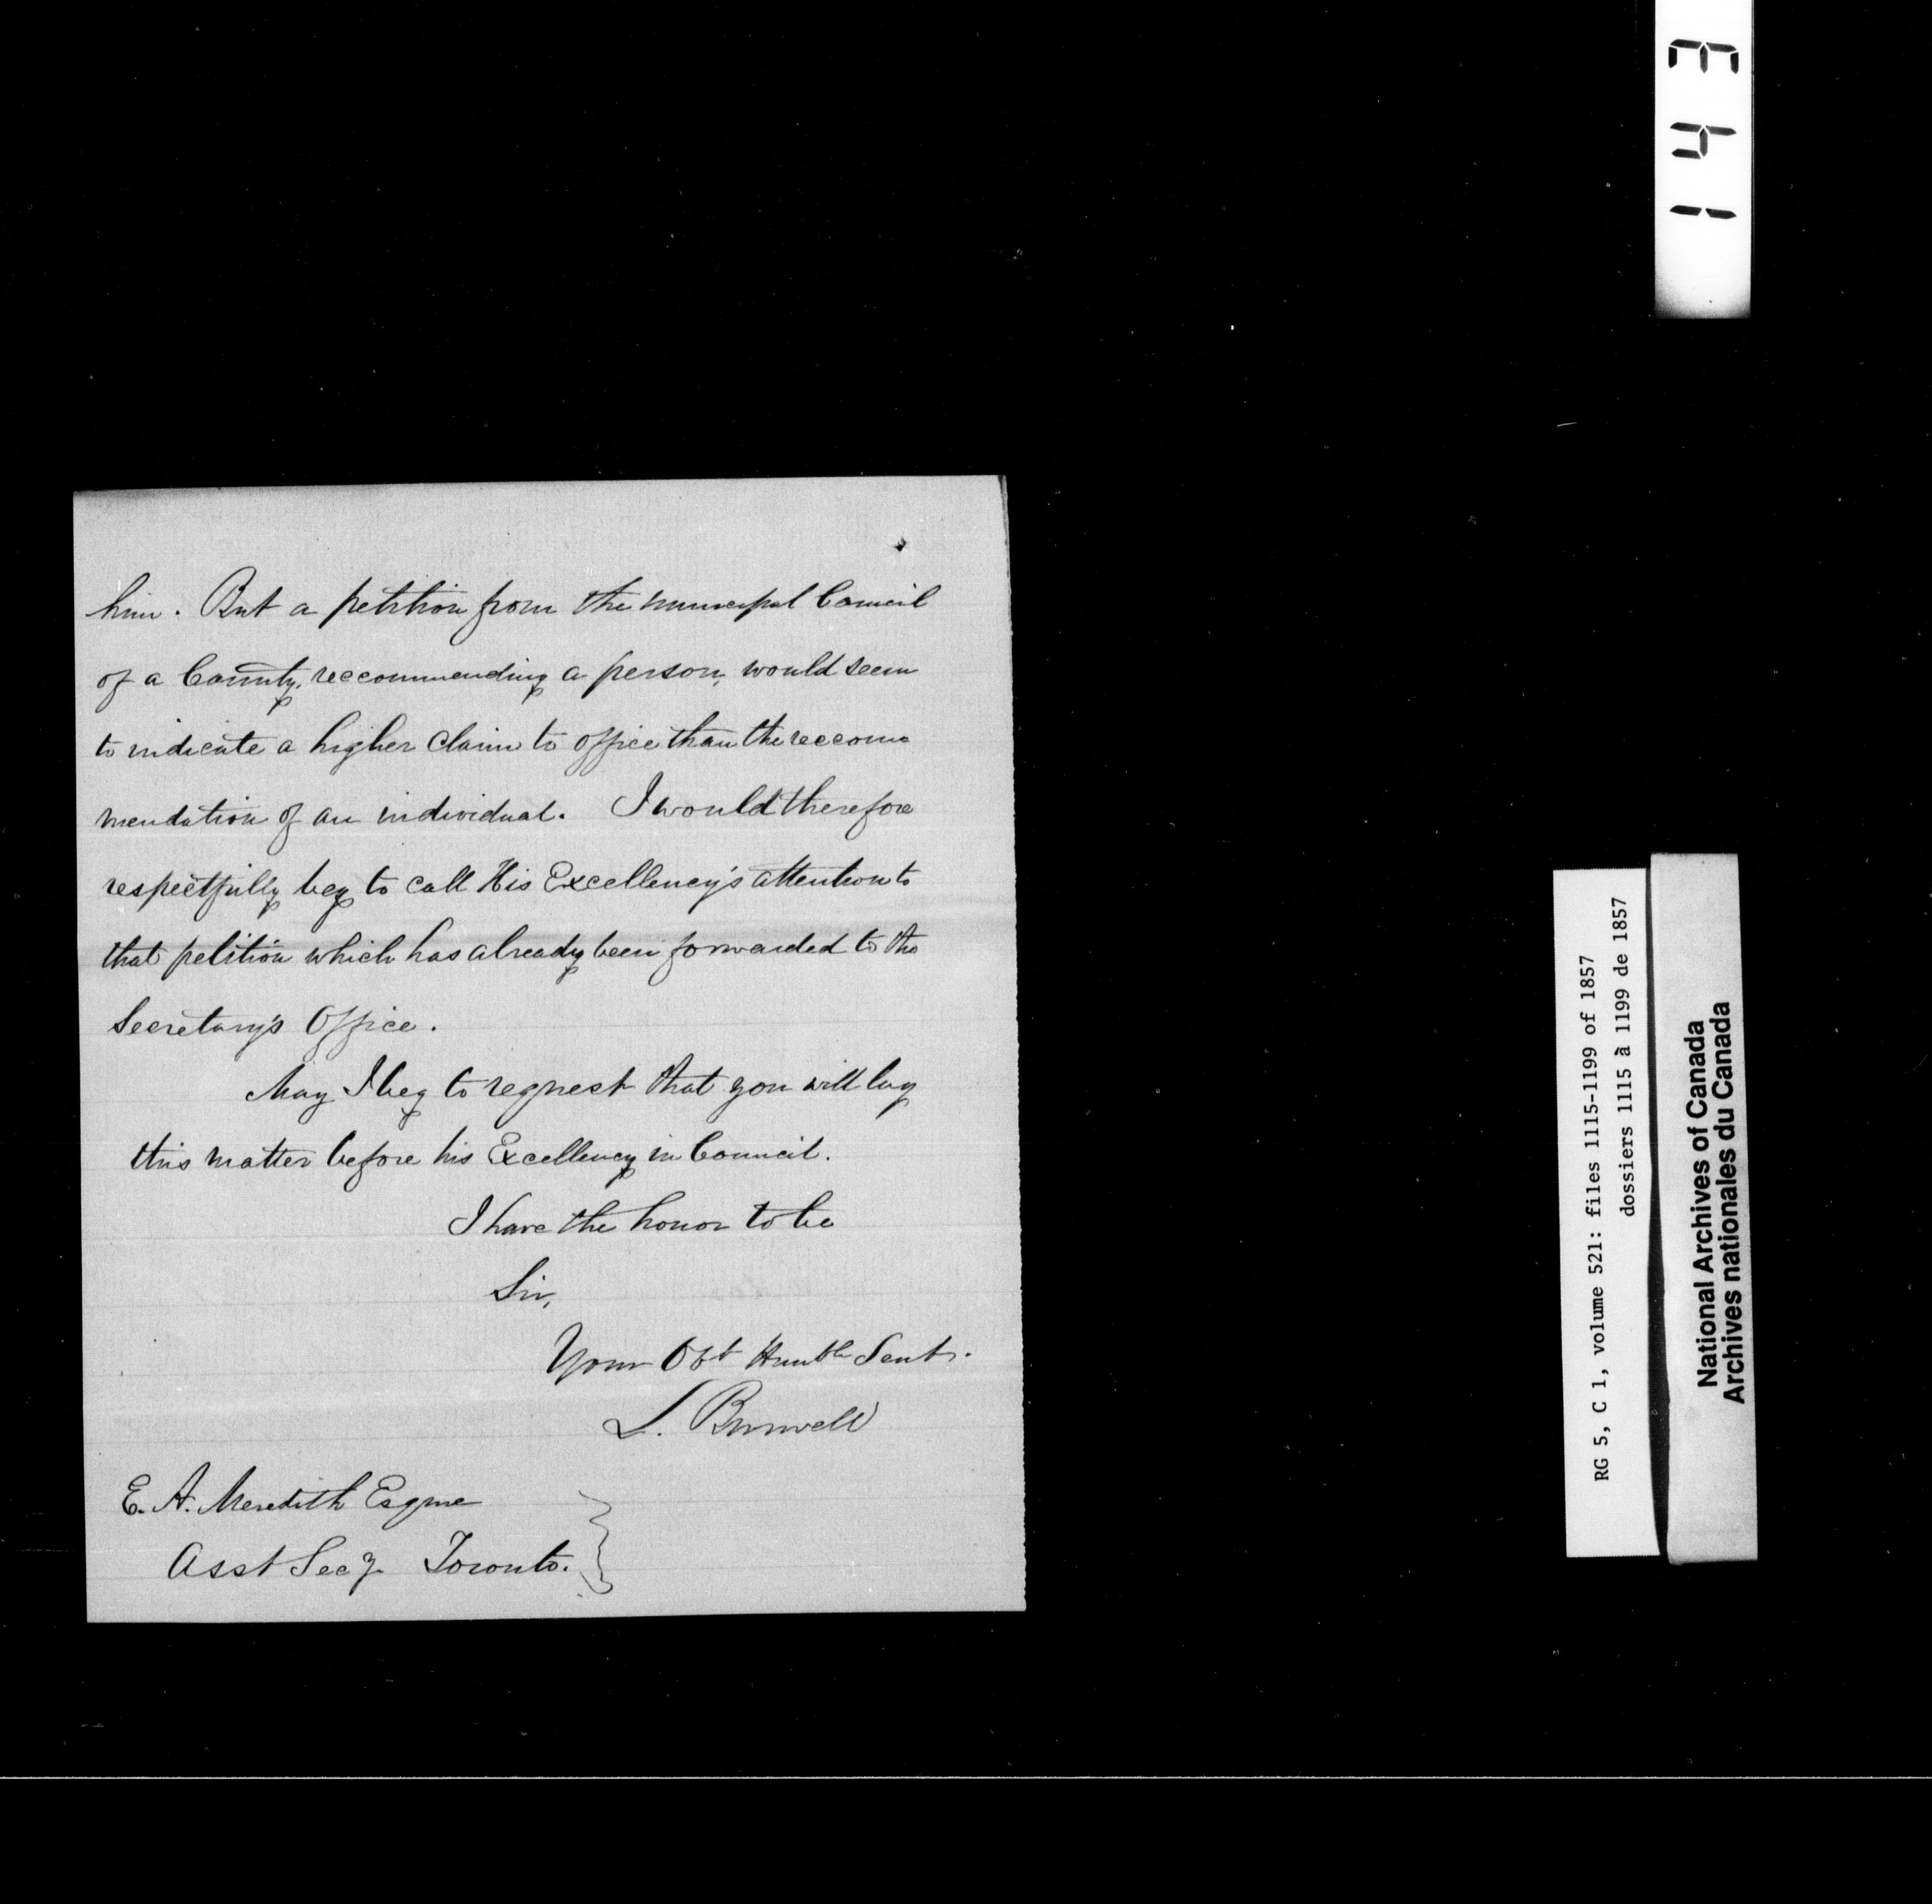 him. But a petition from the municipal Council
of a County, reccommending a person, would seem
to indicate a higher claim to office than the reccom-
mendation of an individual. I would therefore
respectfully beg to call His Excellency's attention to
that petition which has already been forwarded to the
Secretary's Office.
May I beg to request that you will lay
this matter before his Excellency in Council.
I have the honor to be
Sir,
Your Obt Humble Servt.
L. Burwell
E. A. Meredith Esquire
Asst Secy Toronto.
143
RG 5, C 1, volume 521: files 1115-1199 of 1857
dossiers 1115 à 1199 de 1857
National Archives of Canada
Archives nationales du Canada